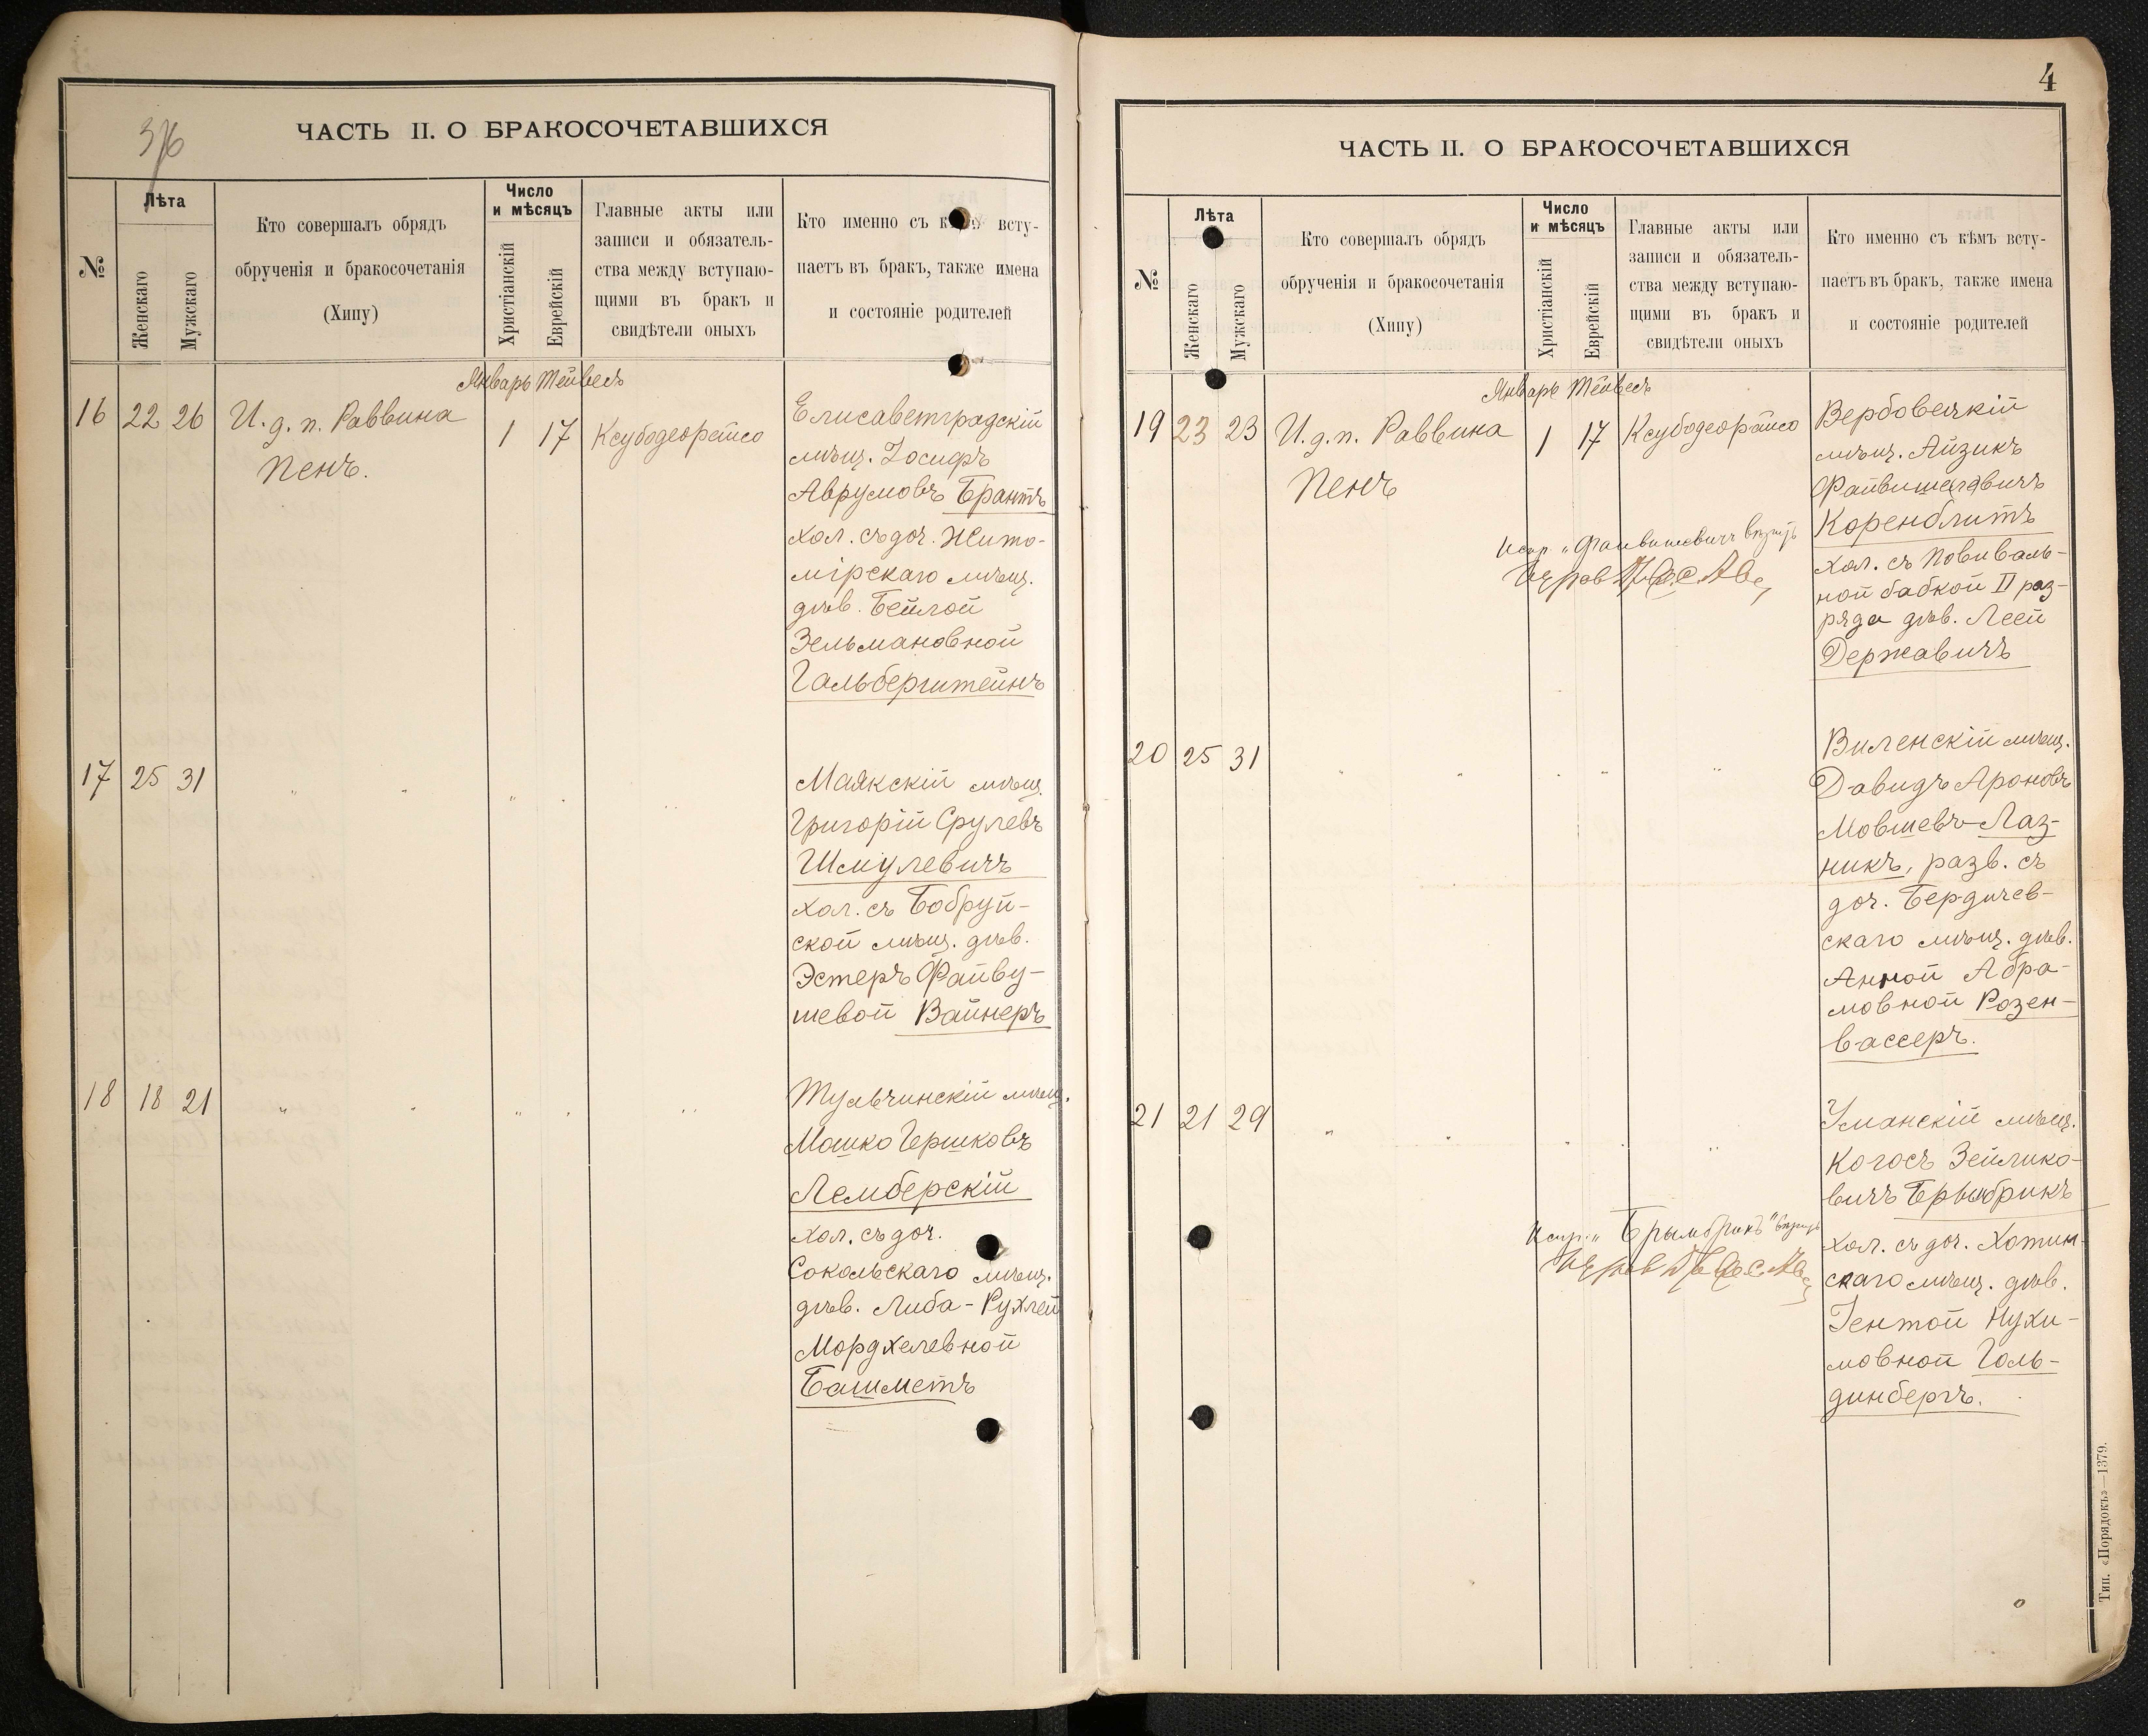 3/6
ЧАСТЬ II. О БРАКОСОЧЕТАВШИХСЯ
№
Лѣта
Женскаго
Мужскаго
Кто совершалъ обрядъ
обрученія и бракосочетанія
(Хипу)
Число
и мѣсяцъ
Христіанскій
Еврейскій
Главные акты или
записи и обязатель-
ства между вступаю-
щими въ бракъ и
свидѣтели оныхъ
Кто именно съ всту-
паетъ въ бракъ, также имена
и состояніе родителей
Январь Тейвесъ
16 22 26 И. д. п. Раввина 1 17 Ксубодеорайсо
Пенъ.
Елисаветградскій
мѣщ. Іосифъ
Аврумовъ Брантъ
хол. съ доч. Жито-
мірскаго мѣщ.
дѣв. Бейлой
Зельмановной
Гальберштейнъ
17 25 31 " " " " "
Маякскій мѣщ.
Григорій Срулевъ
Шмулевичъ
хол. съ Бобруй-
ской мѣщ. дѣв.
Эстеръ Файву-
шевой Вайнеръ
18 18 21 " " " " "
Тульчинскій мѣщ.
Мошко Гершковъ
Лемберскій
хол. съ доч.
Сокольскаго мѣщ.
дѣв. Либа-Рухлей
Мордхелевной
Башметъ
4
ЧАСТЬ II. О БРАКОСОЧЕТАВШИХСЯ
№
Лѣта
Женскаго
Мужскаго
Кто совершалъ обрядъ
обрученія и бракосочетанія
(Хипу)
Число
и мѣсяцъ
Христіанскій
Еврейскій
Главные акты или
записи и обязатель-
ства между вступаю-
щими въ бракъ и
свидѣтели оныхъ
Кто именно съ кѣмъ всту-
паетъ въ бракъ, также имена
и состояніе родителей
Январь Тейвесъ
19 23 23 И. д. п. Раввина 1 17 Ксубодеорайсо
Пенъ
Вербовецкій
мѣщ. Айзикъ
Файвишевичъ
Коренблитъ
хол. съ Повиваль-
ной бабкой II раз-
ряда дѣв. Леей
Державичъ
Испр. "Файвишевичъ"
20 25 31 " " " " "
Виленскій мѣщ.
Давидъ Ароновъ
Мовшевъ Лаз-
никъ, разв. съ
доч. Бердичев-
скаго мѣщ. дѣв.
Анной Абра-
мовной Розен-
вассеръ.
21 21 29 " " " " "
Уманскій мѣщ.
Когосъ Зейлико-
вичъ Брымбрикъ
хол. съ доч. Хотин-
скаго мѣщ. дѣв.
Гентой Нухи-
мовной Голь-
динбергъ.
Испр. "Брымбрикъ"
Тип. «Порядокъ»—1379.